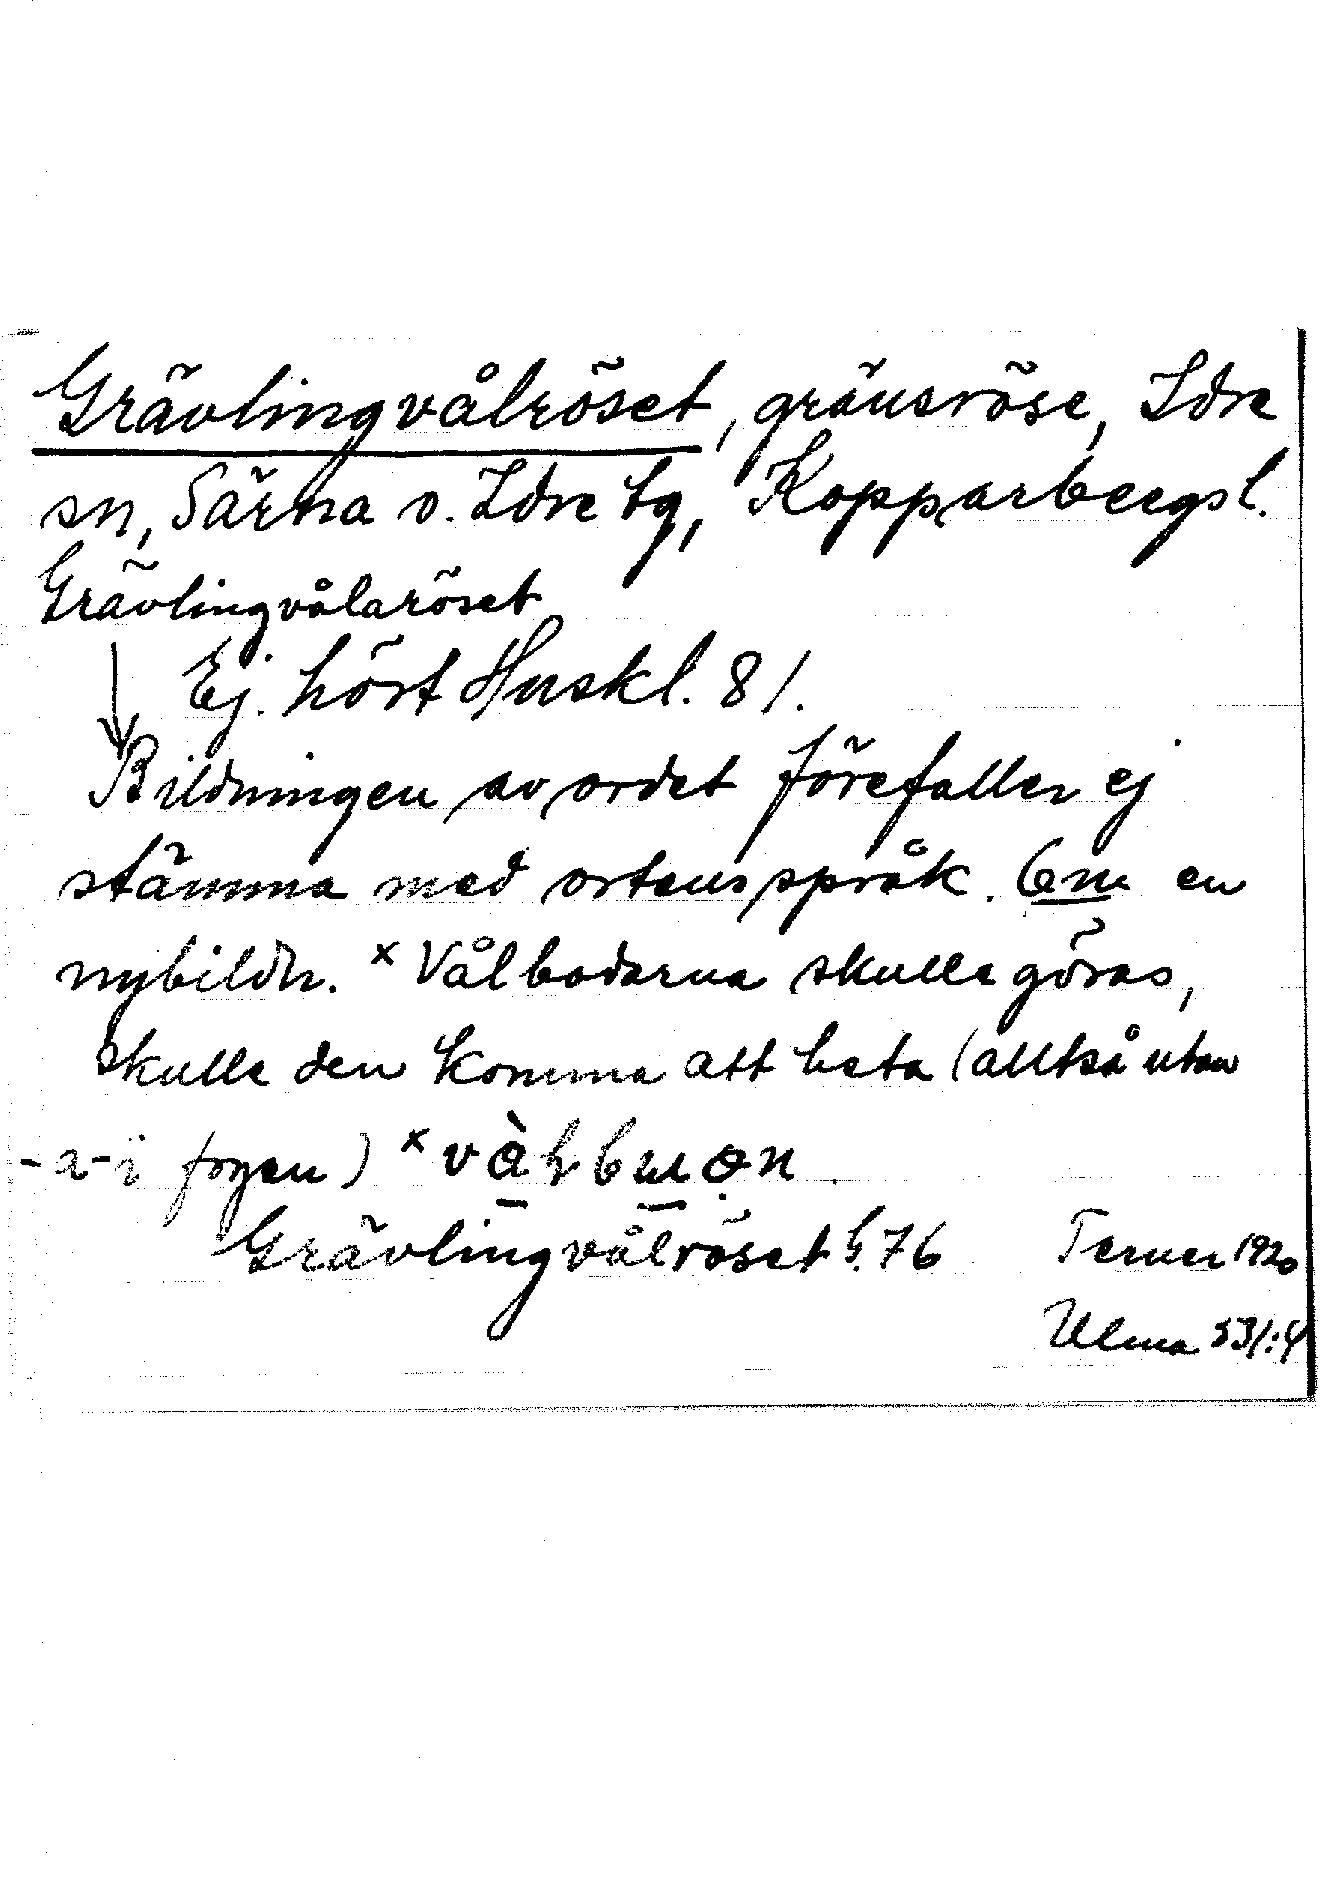 Grävlingvålröset, gränsröse, Idre
sn, Särna o. Idre tg, Kopparbergs l.
Grävlingvålaröset
Ej hört Huskl. 81.
Bildningen av ordet förefaller ej
stämma med ortens språk. Om en
nybildn. ×Vålbodarna skulle göras,
skulle den komma att heta (alltså utan
-a- i fogen)
Grävlingvålröset G. 76 Terner 1920
Ulma 531:4